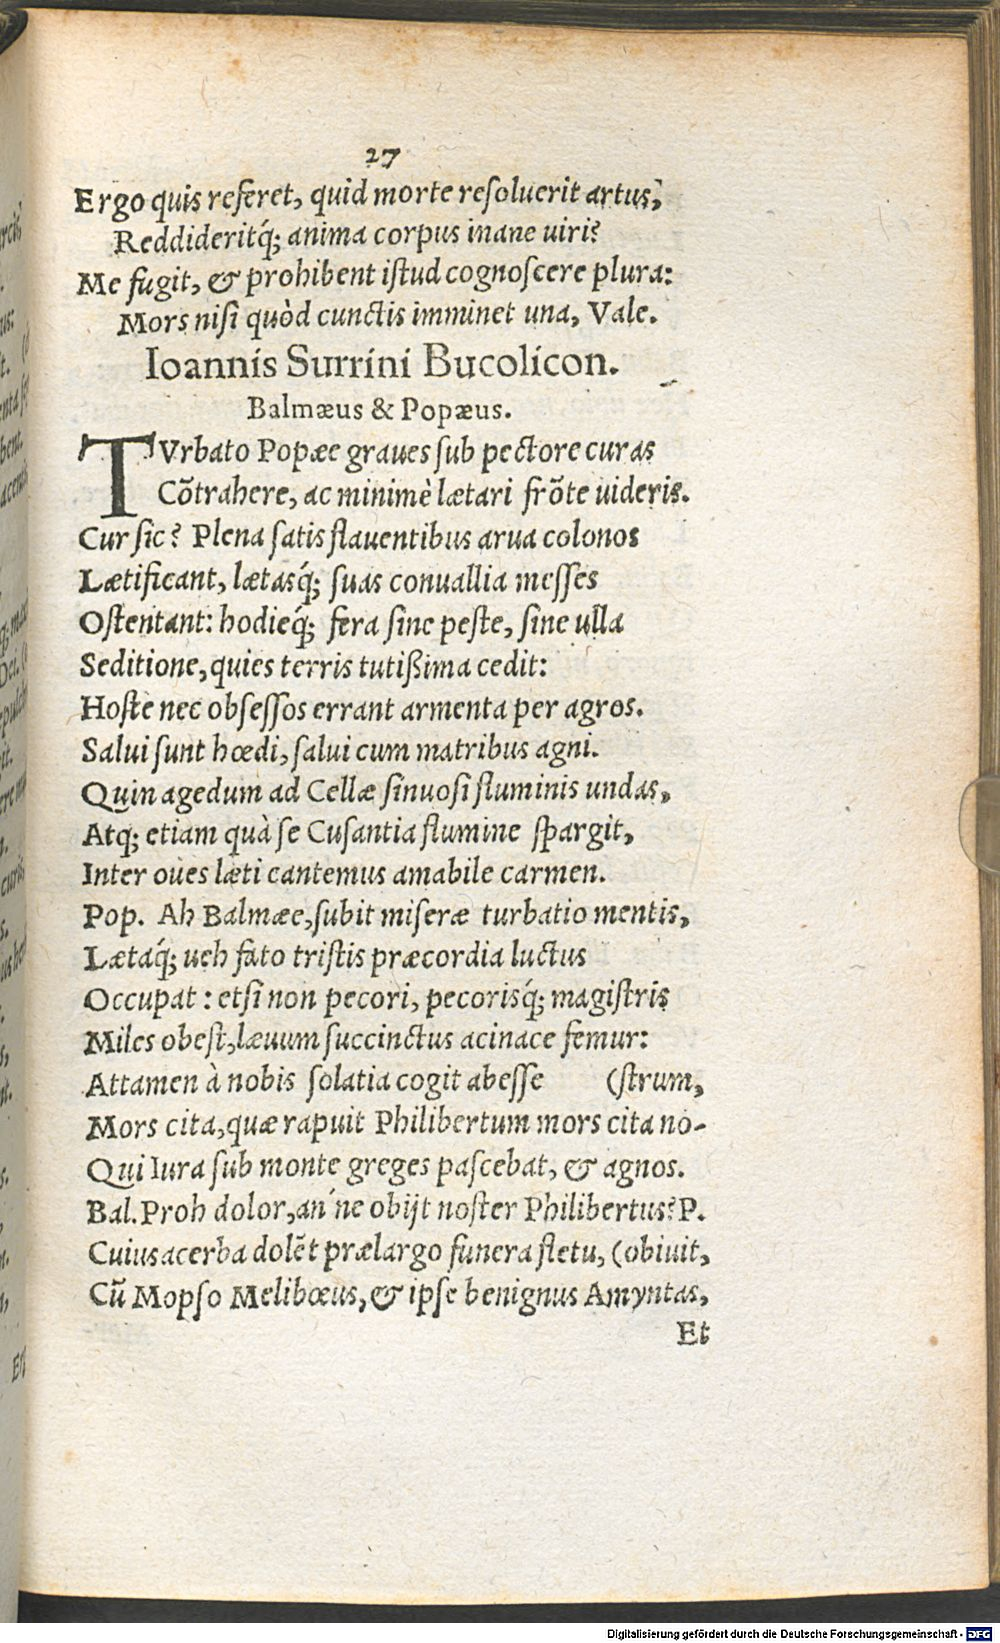 27
Ergo quis referet, quid morte resoluerit artus,
Reddideritq́; anima corpus inane uiri?
Me fugit, & prohibent istud cognoscere plura:
Mors nisi quòd cunctis imminet una, Vale.
Ioannis Surrini Bucolicon.
Balmæus & Popæus.
TVrbato Popæe graues sub pectore curas
Cõtrahere, ac minimè lætari frõte uideris.
Cur sic? Plena satis flauentibus arua colonos
Lætificant, lætasq́; suas conuallia messes
Ostentant: hodieq́; fera sine peste, sine ulla
Seditione, quies terris tutißima cedit:
Hoste nec obsessos errant armenta per agros.
Salui sunt hœdi, salui cum matribus agni.
Quin agedum ad Cellæ sinuosi fluminis undas,
Atq; etiam quà se Cusantia flumine spargit,
Inter oues læti cantemus amabile carmen.
Pop. Ah Balmæe, subit miseræ turbatio mentis,
Lætaq́; ueh fato tristis præcordia luctus
Occupat: etsi non pecori, pecorisq́; magistris
Miles obest, læuum succinctus acinace femur:
Attamen à nobis solatia cogit abesse (strum,
Mors cita, quæ rapuit Philibertum mors cita no-
Qui Iura sub monte greges pascebat, & agnos.
Bal. Proh dolor, an'ne obijt noster Philibertus? P.
Cuius acerba dolẽt prælargo funera fletu, (obiuit,
Cũ Mopso Melibœus, & ipse benignus Amyntas,
Et
Digitalisierung gefördert durch die Deutsche Forschungsgemeinschaft - DFG